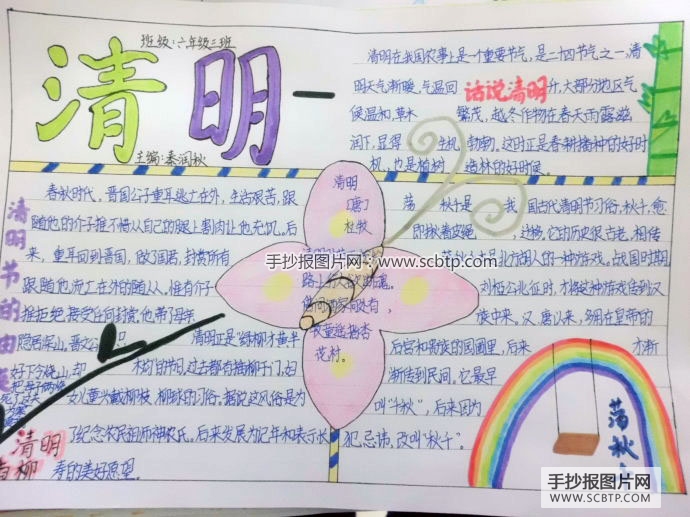 班级:六年级三班
清明
主编:秦润秋
清明在我国农事上是一个重要节气,是二十四节气之一,清
明天气渐暖,气温回
话说清明
升,大部分地区气
候温和,草木
繁茂,越冬作物在春天雨露滋
润下,显得
生机
勃勃。这时正是春耕播种的好时
机,也是植树
造林的好时候。
清明节的由来
春秋时代,晋国公子重耳逃亡在外,生活艰苦,跟
随他的介子推不惜从自己的腿上割肉让他充饥。后
来,重耳回到晋国,做了国君,封赏所有
跟随他流亡在外的随从。惟有介子
推拒绝接受任何封赏,他带了母亲
隐居深山,晋文公
好下令烧山,却
把
清明
[唐]
杜牧
路上行人欲断魂。
借问酒家何处有,
牧童遥指杏
花村。
手抄报图片网:www.scbtp.com
荡
秋千是
我
国古代清明节习俗,秋千,意
即揪着皮绳
迁移,它的历史很古老,相传
时期
刘
征,才将这种游戏传到汉
族中来。汉
唐以来,多用在皇帝的
后宫和贵族的园囿里,后来
方渐
渐传到民间。它最早
叫"千秋",后来因为
犯忌讳,改叫"秋千"。
荡秋千
清明
柳
清明正是"绿柳才黄半
的节日,过去都有插柳于门,妇
女儿童头戴柳枝、柳球的习俗。据说这风俗是为
了纪念农民祖师神农氏。后来发展为记年和表示长
寿的美好愿望。
手抄报图片网
WWW.SCBTP.COM